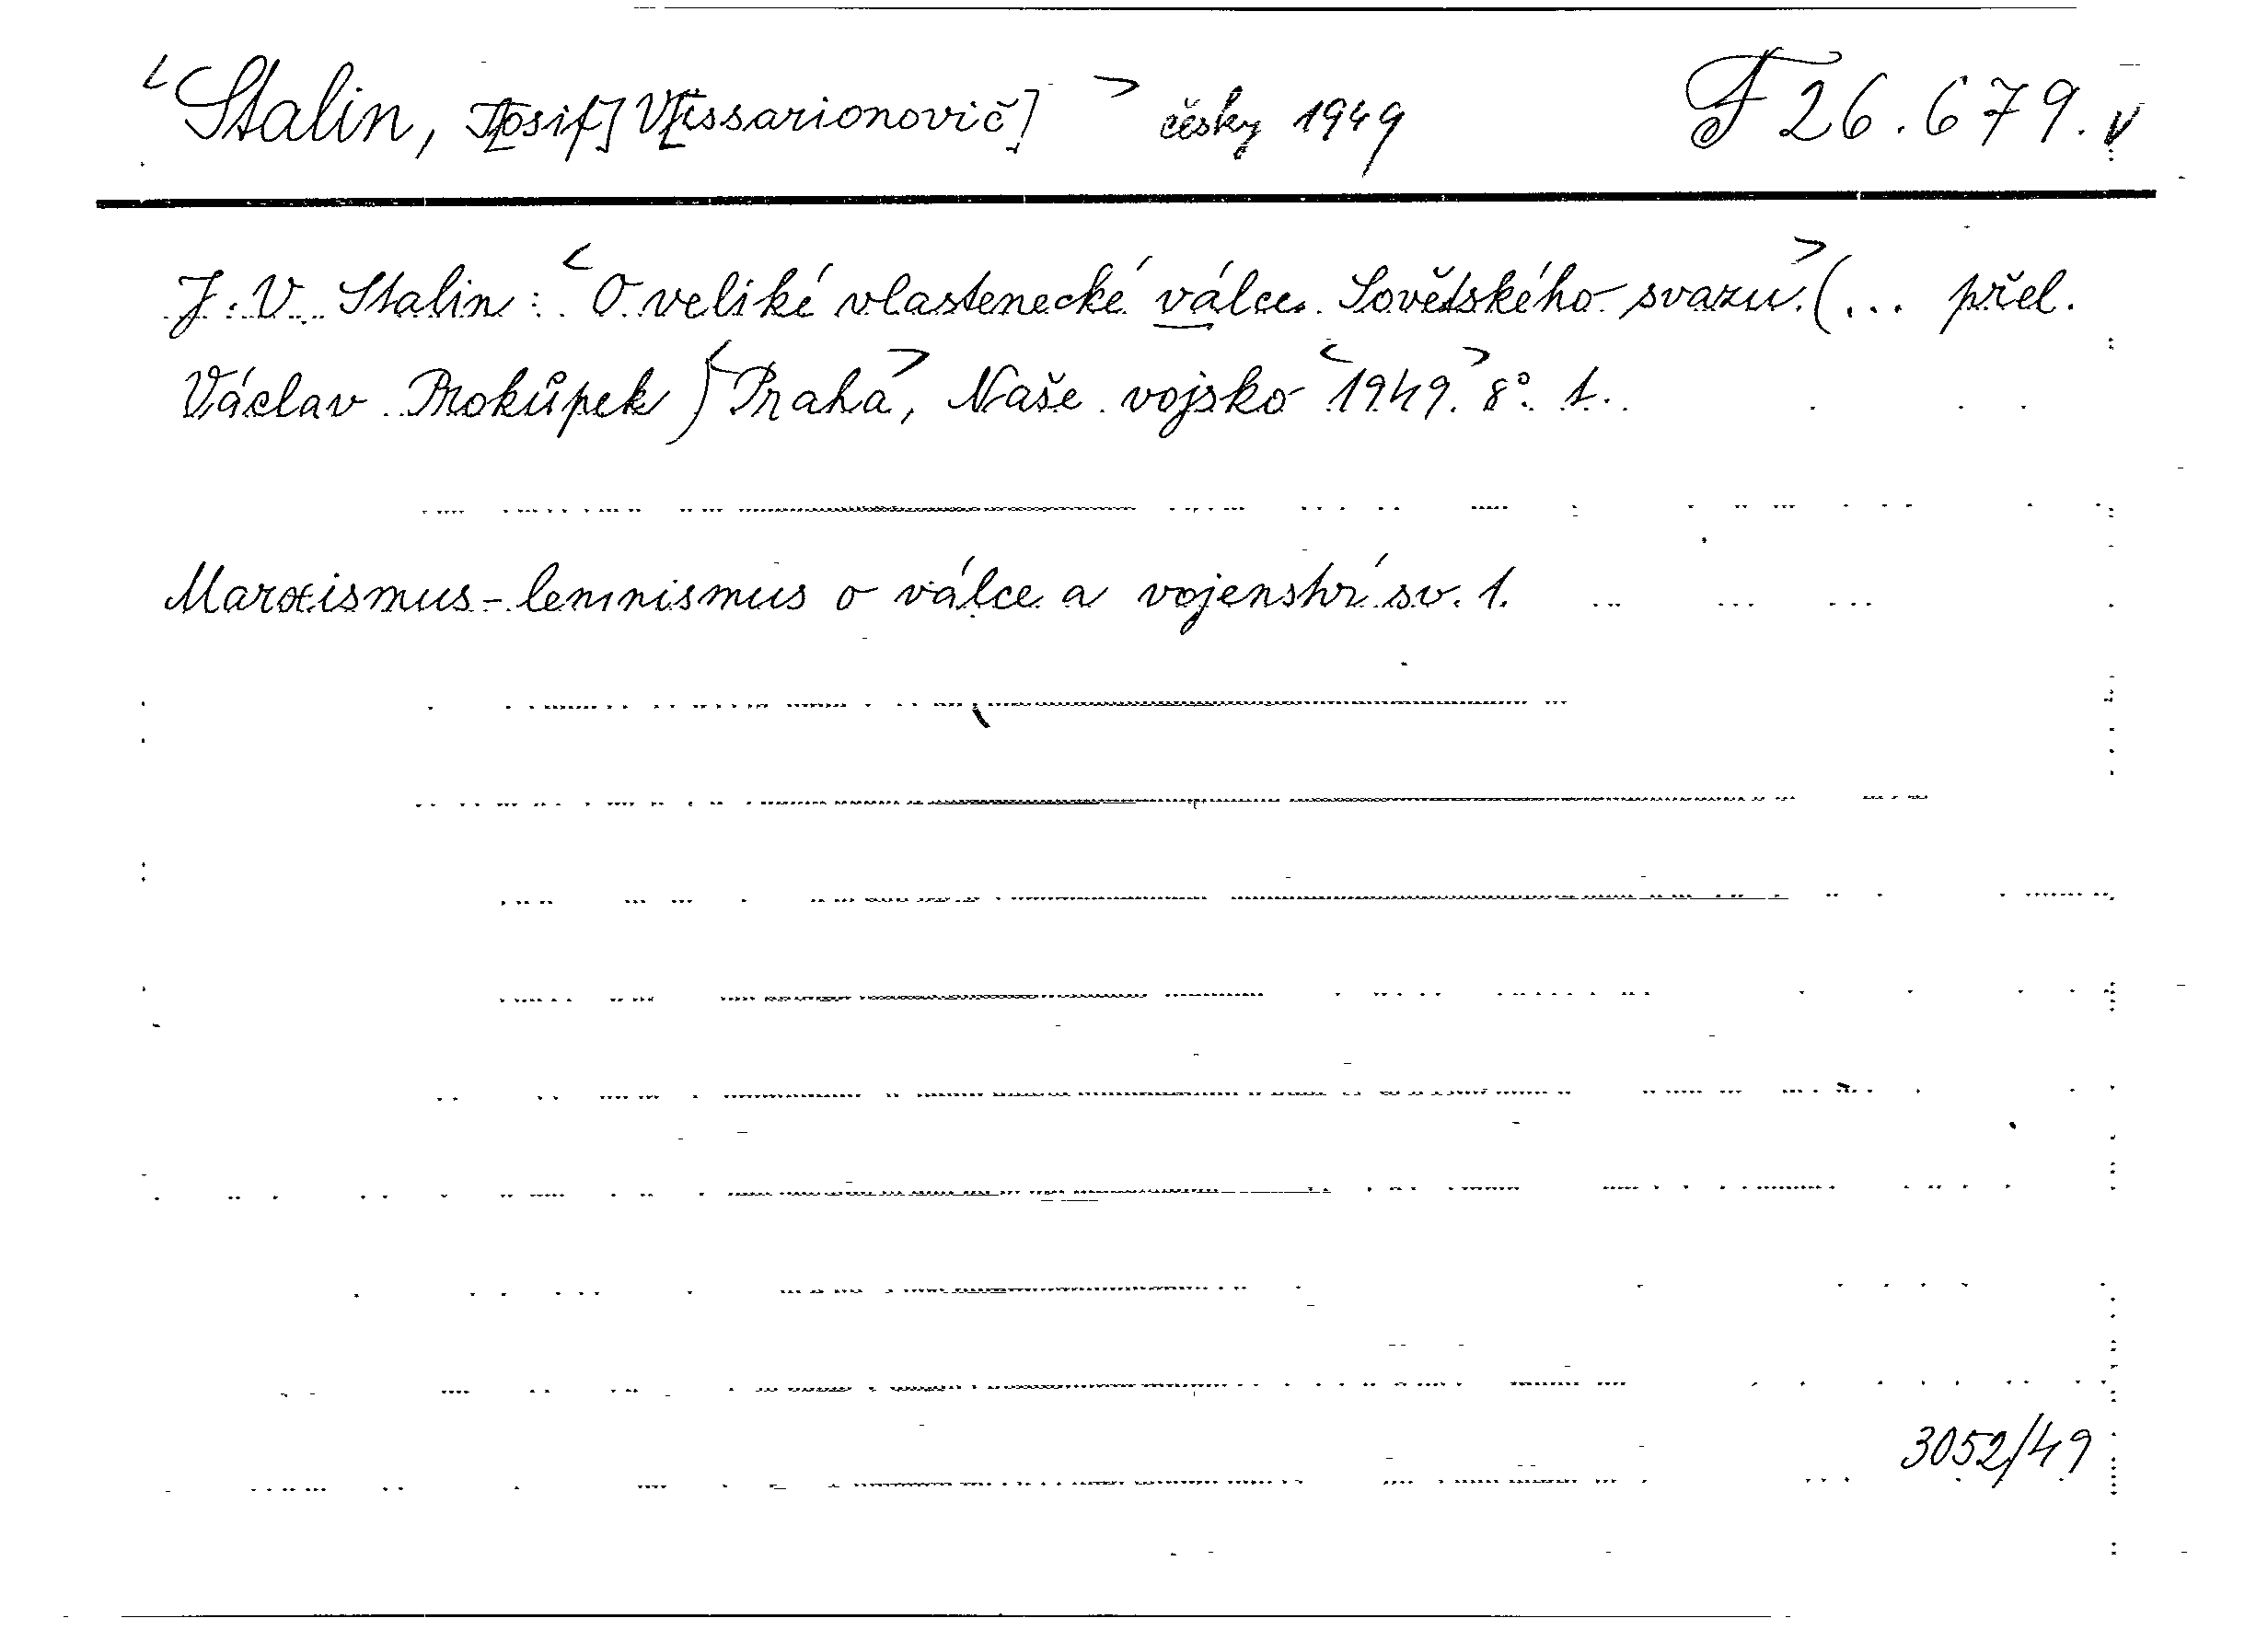 <Stalin, J[osif] V[issarionovič]> česky 1949 F 26.679.
J. V. Stalin: <O veliké vlastenecké válce Sovětského svazu.> (... přel.
Václav Prokůpek) <Praha>, Naše vojsko <1949>. 8°. 1.
Marxismus-leninismus o válce a vojenství sv. 1.
3052/49